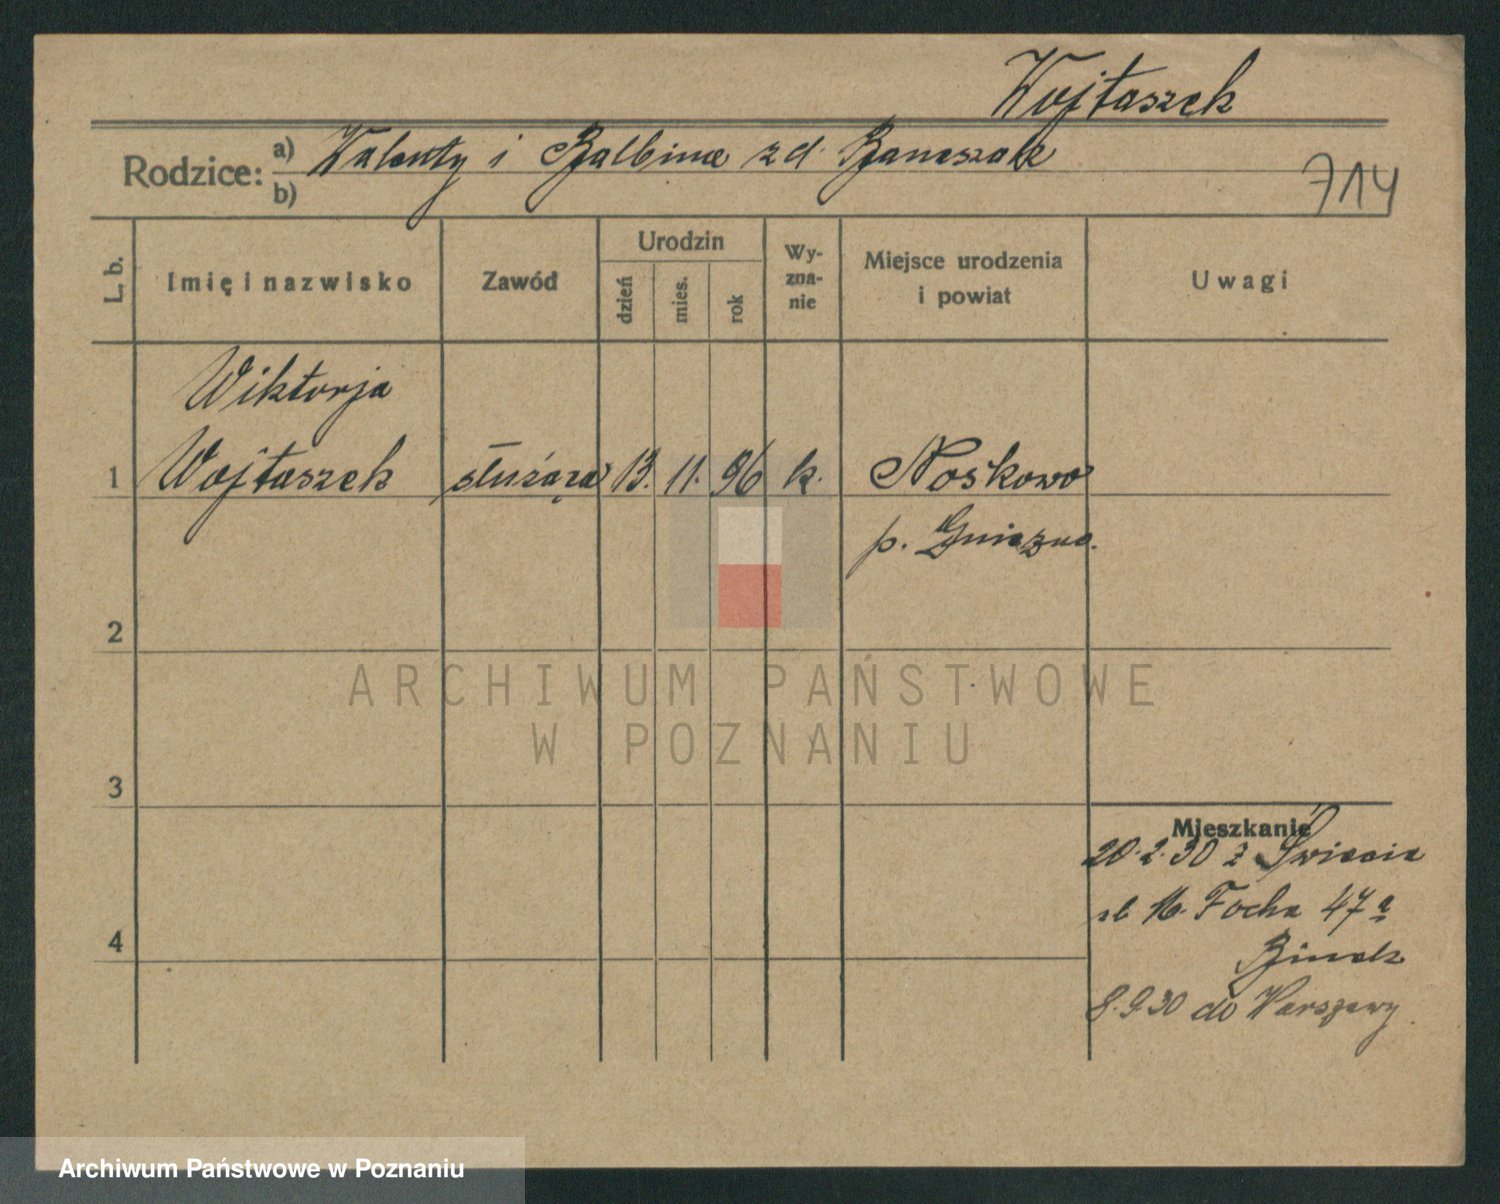 Wojtaszek
Rodzice: a) Walenty i Balbina z d. Banaszak
b)
714
L. b.
Imię i nazwisko
Zawód
Urodzin
dzień
mies.
rok
Wy-
zna-
nie
Miejsce urodzenia
i powiat
Uwagi
Wiktorja
1 Wojtaszek służąca 13. 11. 96 k. Noskowo
p. Gniezno.
2
ARCHIWUM PAŃSTWOWE
W POZNANIU
3
Mieszkanie
20.2.30 z Świecia
M. Focha 47a
Binek
4
8.9.30 do Warszawy
Archiwum Państwowe w Poznaniu